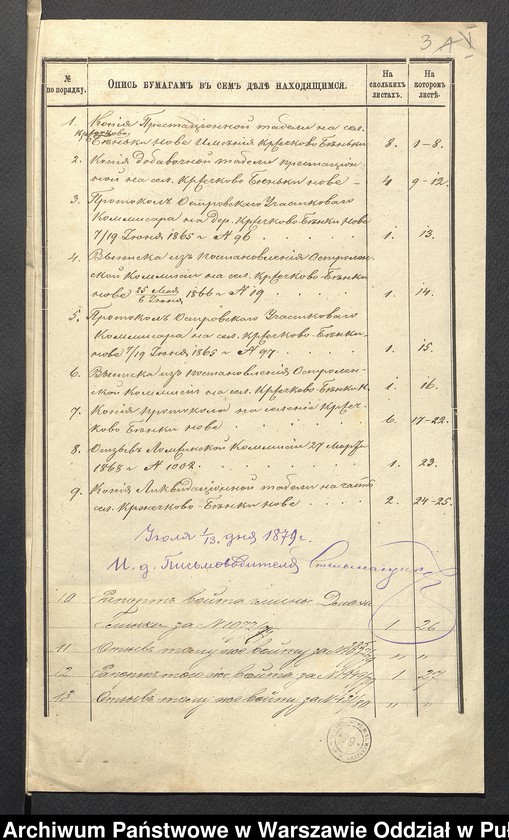 3 A V
№ по порядку.
Опись бумагамъ въ семъ дѣлѣ находящимся.
На сколькихъ листахъ.
На которомъ листѣ.
1. Копія Престаціонной табели на сел.
Бѣньки нове Имѣнія Кржечково Бѣньки 8. 1-8.
2. Копія добавочной табели престаціон-
ной на сел. Кржечково Бѣньки нове - 4 9-12.
3. Протоколъ Островскаго Участковаго
Коммисара на дер. Кржечково-Бѣнки нове
7/19 Іюня 1865 г № 96 1. 13.
4. Выписка изъ постановленія Остролен-
ской Коммисіи на сел. Кржечково-Бѣнки
нове 25 Мая/6 Іюня 1866 г № 19 1. 14.
5. Протоколъ Островскаго Участковаго
Коммисара на сел. Кржечково-Бѣнки-
нове 7/19 Іюня 1865 г № 97. 1. 15.
6. Выписка изъ постановленія Остролен-
ской Коммисіи на сел. Кржечково-Бѣнки н. 1. 16.
7. Копія протокола на селеніе Кржеч-
ково Бѣнки нове 6. 17-22.
8. Отзывъ Ломжинской Коммисіи 27 Марта
1868 г № 1002. 1. 23.
9. Копія Ликвидаціонной табели на часть
сел. Кржечково-Бѣнки нове 2. 24-25.
Іюля 1/13. дня 1879 г.
И. д. Письмоводителя
10 Рапортъ войта гмины
за № 1 26
11 Отзывъ тому же войту за № " "
12 Рапортъ того же войта за № 1 27
13 Отзывъ тому же войту за № " "
Archiwum Państwowe w Warszawie Oddział w Puł